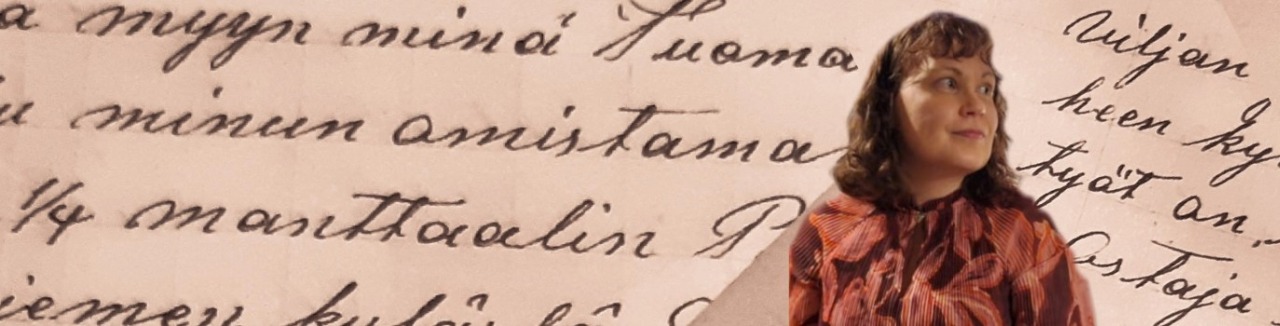 a myyn minä Suoma
u minun omistama
1/4 manttaalin P
iemen kylässä
Viljan
heen ky
työt an.
Ostaja